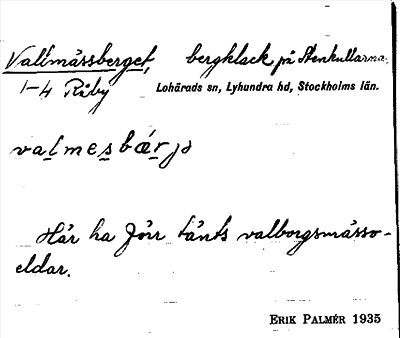 Vallmässberget, bergklack på Stenkullarna.
1-4 Råby Lohärads sn, Lyhundra hd, Stockholms län.
valmesbárjə
Här ha förr tänts valborgsmässo-
eldar.
ERIK PALMÉR 1935